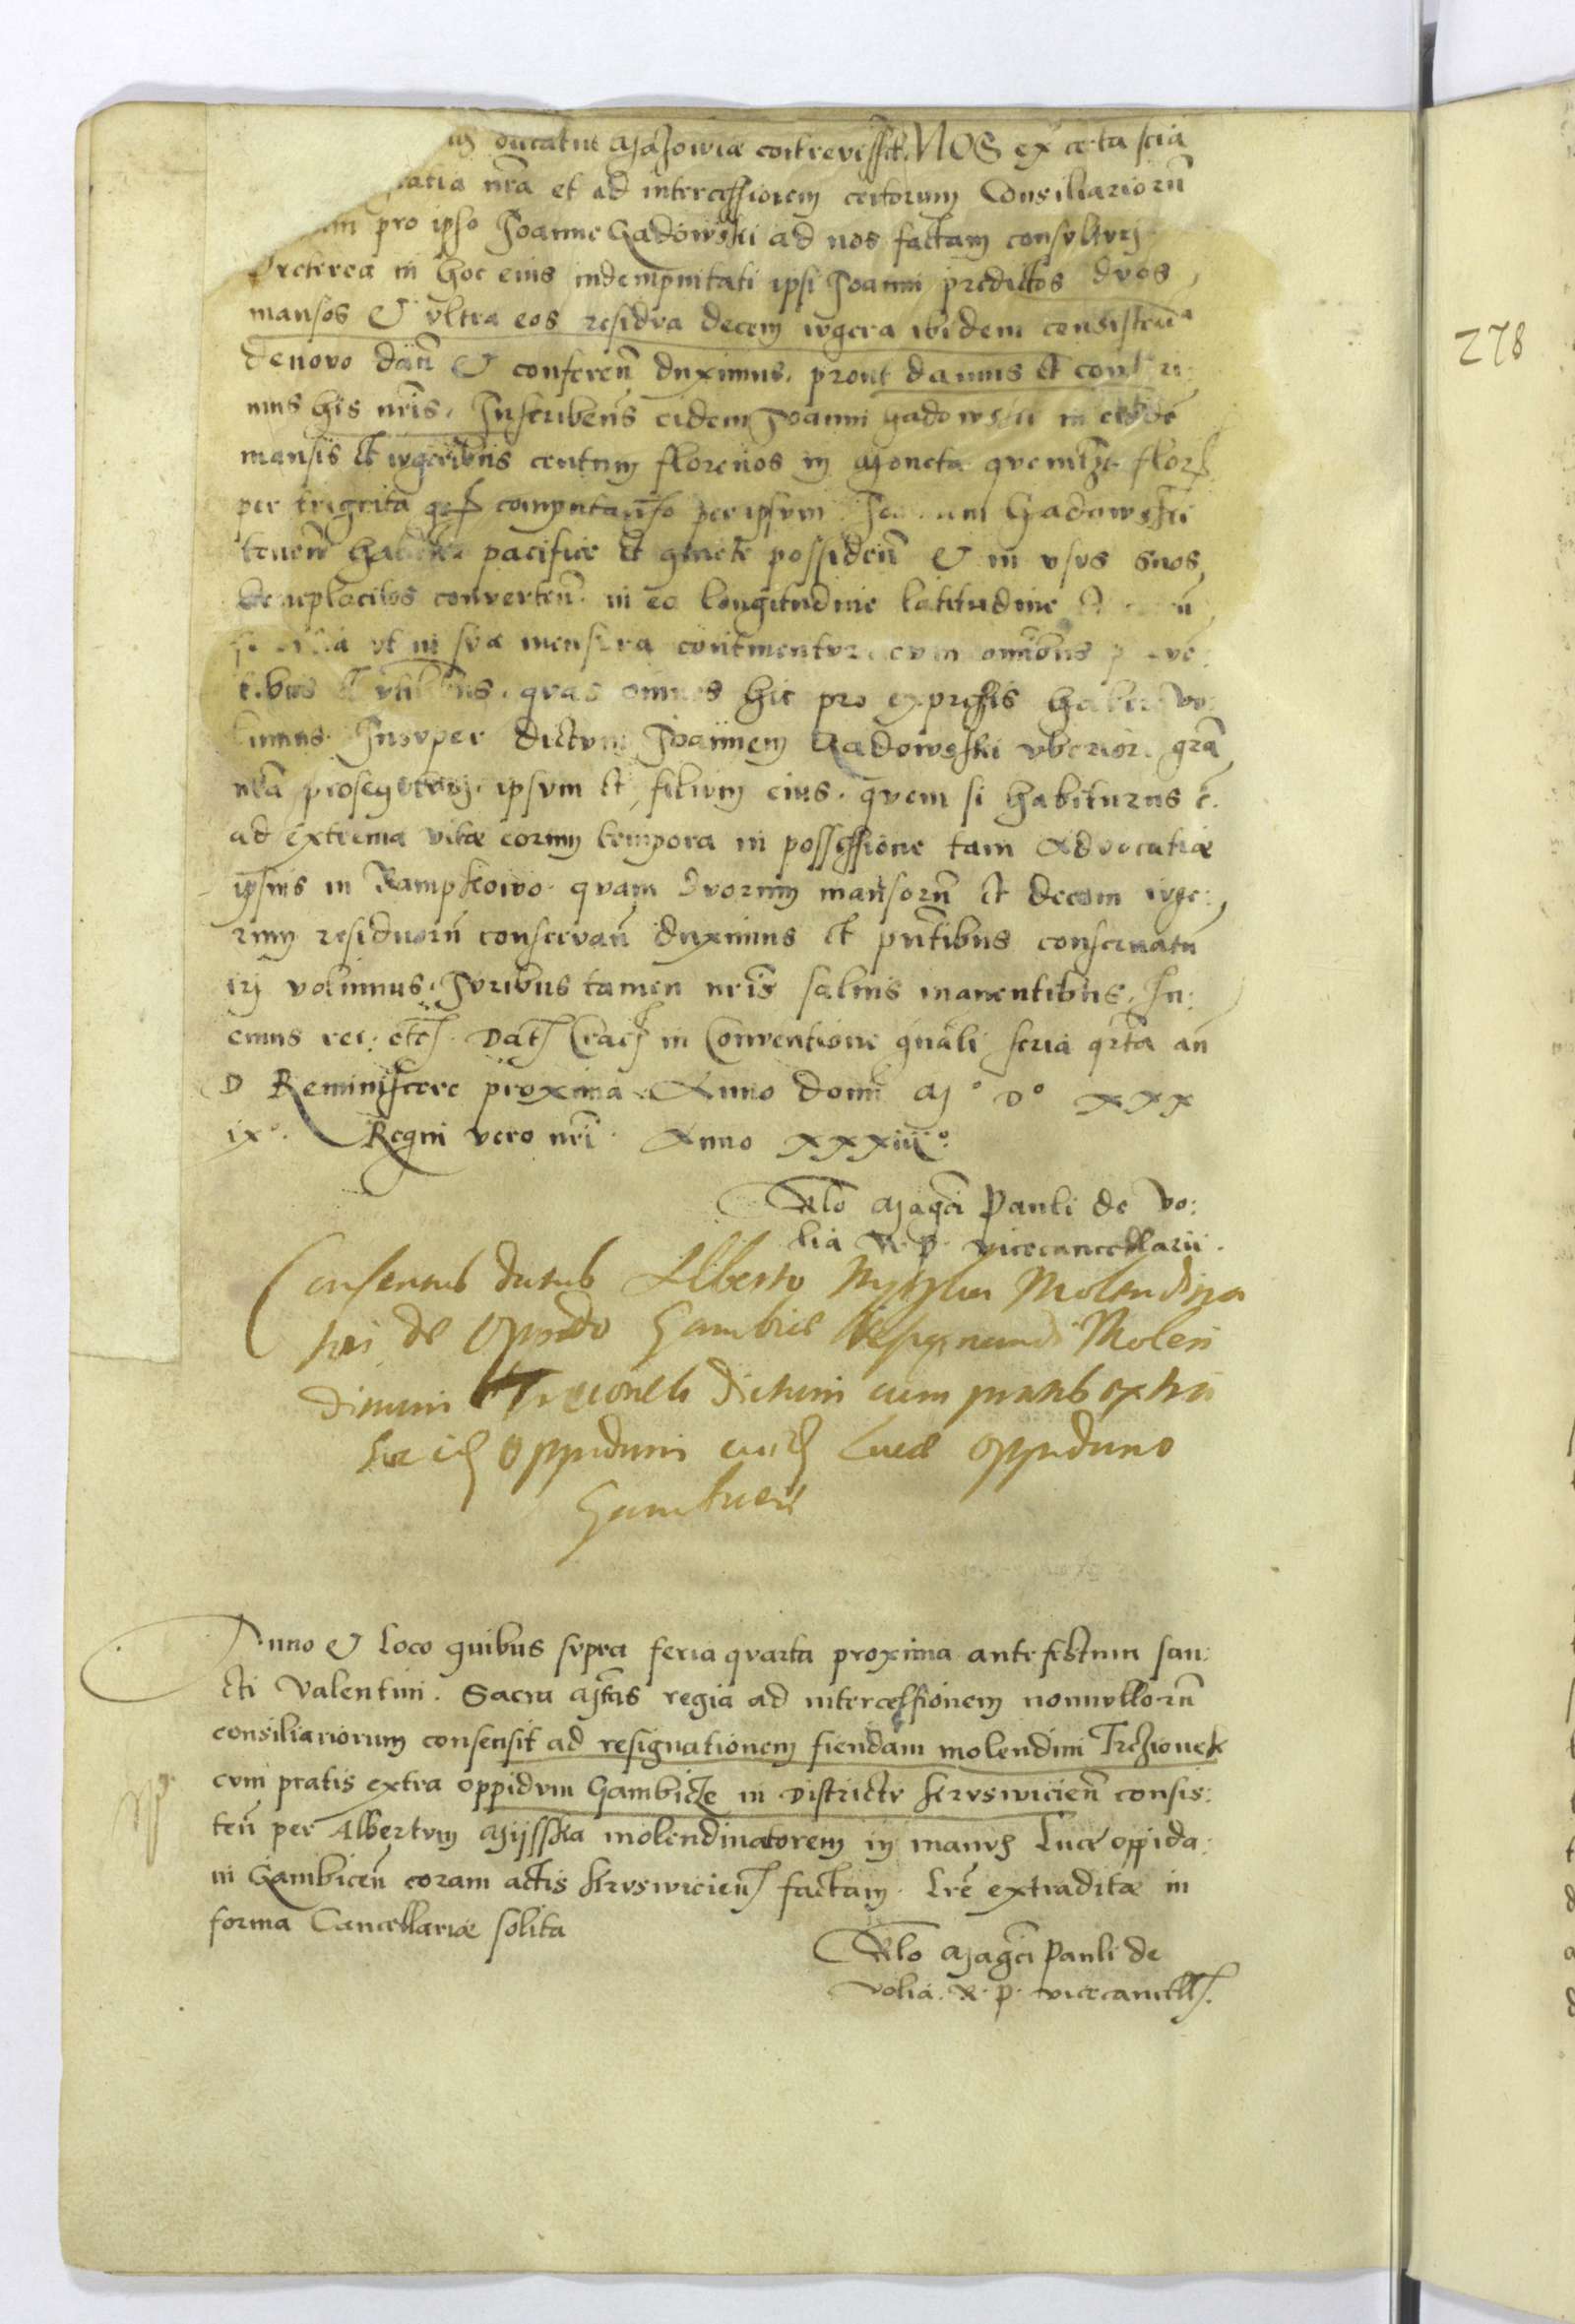 ducatus Mazowiæ contrevisset. NOS ex certa scia
gratia nra et ad intercessionem certorum Consiliariorũ
pro ipso Joanne Gadowski ad nos factam consultum
Preterea in hoc eius indempnitati ipsi Joanni predictos duos
mansos & vltra eos residua decem iugera ibidem consisteñ
denovo dañ & confereñ duximus, prout damus et conferi
mus his nris. Inscribens eidem Joanni Gadowski in eisdē
mansis et iugeribus centum florenos in Moneta
per trigita computando per ipsum Joannem Gadowski
teneñ pacifice et quiete possideñ & in vsus suos
beneplacitos converteñ. in ea longitudine latitudine
vt in sua mensura continentur cum omībus
quas omnes hic pro expressis haberi vo:
lumus. Insuper dictum Joannem Gadowski vberiori grā
nrā ipsum et filium eius. quem si habiturus ē.
ad extrema vitæ eorum tempora in possessione tam Advocatiæ
ipsius in Rampkowo. quam duorum mansorũ et decem iuge:
rum residuorũ conservañ duximus et pñtibus conservatu
iri volumus. Juribus tamen nris salvis manentibus. In
cuius rei: etc. Dat Crac in Conventione gnāli feria qrta an
D Reminiscere proxima. Anno domi M° D° XXX
ix°. Regni vero nri. Anno XXXiii°.
Rlo Magci Pauli de Vo:
lia R. P. vicecancellarii.
Consensus datus Alberto Mysska Molendina
tori de Opido Gambice resignandi Molen
dinum Trzionek dictum cum pratis extra
Oppidum Lucæ oppidano
Gambicen
278
Anno & Loco quibus supra feria quarta proxima ante festum san:
cti Valentini. Sacra Mtas regia ad intercessionem nonnullorũ
consiliariorum consensit ad resignationem fiendam molendini Trzionek
cum pratis extra oppidum Gambicze in Districtu Kruswicieñ consis:
teñ per Albertum Mijsska molendinatorem in manus Lucæ oppida:
ni Gambiceñ coram actis Kruswicień factam. Lrē extraditæ in
forma Cancellariæ solita
Rlo Magci Pauli de
Volia. R. P. vicecancell.